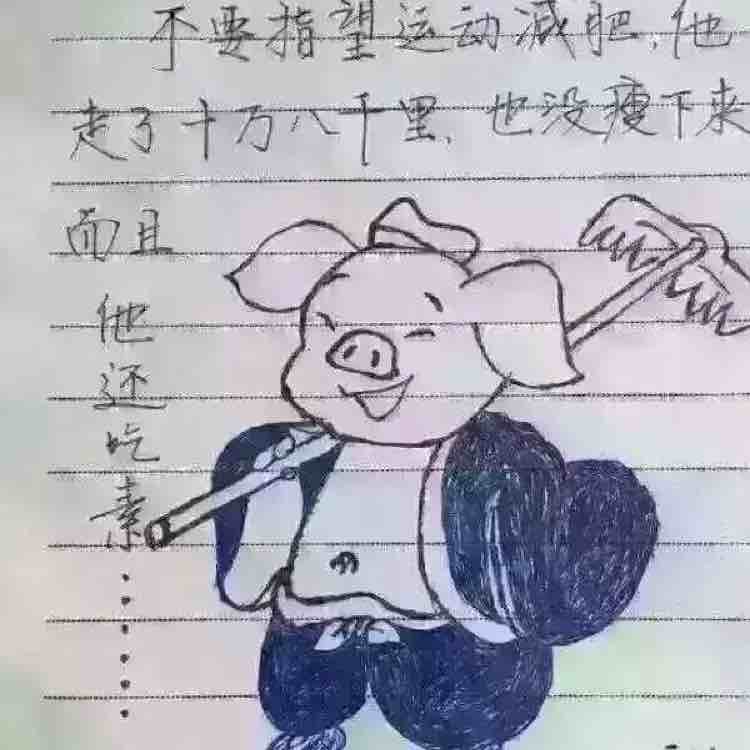 不要指望运动减肥，他
走了十万八千里，也没瘦下来
而且
他
还
吃
素
······